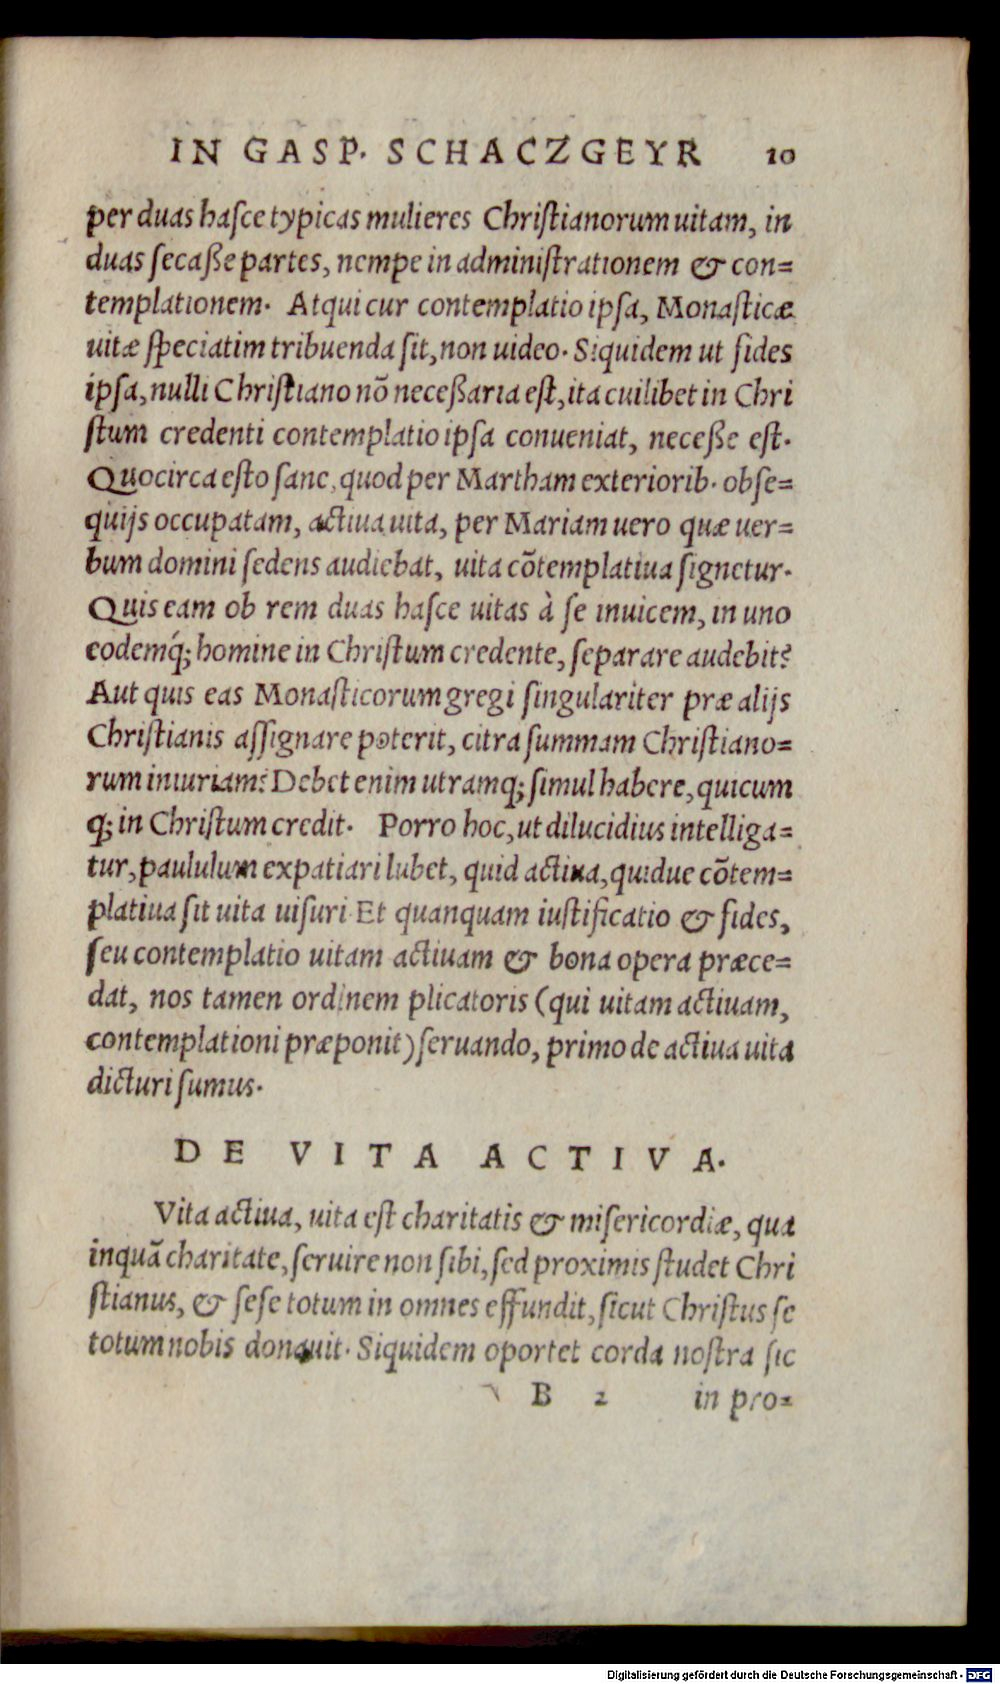 IN GASP. SCHACZGEYR 10
per duas hasce typicas mulieres Christianorum uitam, in
duas secaße partes, nempe in administrationem & con=
templationem. Atqui cur contemplatio ipsa, Monasticæ
uitæ speciatim tribuenda sit, non uideo. Siquidem ut fides
ipsa, nulli Christiano nõ neceßaria est, ita cuilibet in Chri
stum credenti contemplatio ipsa conueniat, neceße est.
Quocirca esto sane, quod per Martham exteriorib. obse=
quijs occupatam, actiua uita, per Mariam uero quæ uer=
bum domini sedens audiebat, uita cõtemplatiua signetur.
Quis eam ob rem duas hasce uitas à se inuicem, in uno
eodemq́; homine in Christum credente, separare audebit?
Aut quis eas Monasticorum gregi singulariter præ alijs
Christianis assignare poterit, citra summam Christiano=
rum iniuriam? Debet enim utramq; simul habere, quicum
q; in Christum credit. Porro hoc, ut dilucidius intelliga=
tur, paululum expatiari lubet, quid actiua, quidue cõtem=
platiua sit uita uisuri. Et quanquam iustificatio & fides,
seu contemplatio uitam actiuam & bona opera præce=
dat, nos tamen ordinem plicatoris (qui uitam actiuam,
contemplationi præponit) seruando, primo de actiua uita
dicturi sumus.
DE VITA ACTIVA.
Vita actiua, uita est charitatis & misericordiæ, qua
inquã charitate, seruire non sibi, sed proximis studet Chri
stianus, & sese totum in omnes effundit, sicut Christus se
totum nobis donauit. Siquidem oportet corda nostra sic
B 2 in pro=
Digitalisierung gefördert durch die Deutsche Forschungsgemeinschaft - DFG